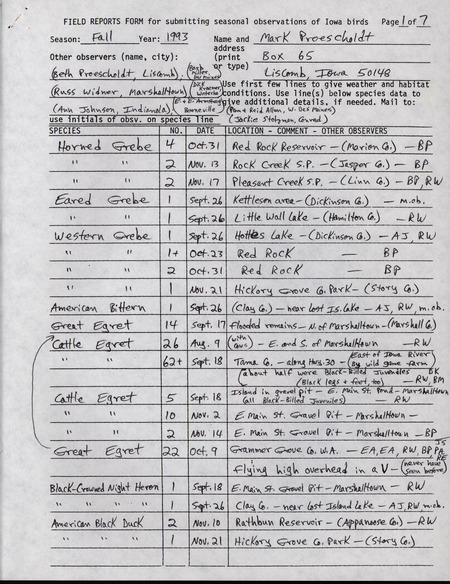 FIELD REPORTS FORM for submitting seasonal observations of Iowa birds Page 1 of 7
Season: Fall Year: 1993 Name and Mark Proescholdt
address
Other observers (name, city): (print Box 65
or type) Liscomb, Iowa 50148
(Beth Proescholdt, Liscomb),
(Russ Widner, Marshalltown)
(Ann Johnson, Indianola)
Use first few lines to give weather and habitat
conditions. Use line(s) below species data to
give additional details, if needed. Mail to:
(Pam & Reid Allen, W. Des Moines)
use initials of obsv. on species line (Jackie Stolynow, Grund)
SPECIES NO. DATE LOCATION - COMMENT - OTHER OBSERVERS
Horned Grebe 4 Oct. 31 Red Rock Reservoir - (Marion Co.) - BP
" " 2 Nov. 13 Rock Creek S.P. - (Jasper Co.) - BP
" " 2 Nov. 17 Pleasant Creek S.P. - (Linn Co.) - BP, RW
Eared Grebe 1 Sept. 26 Kettleson area - (Dickinson Co.) - m.ob.
" " 1 Sept. 26 Little Wall Lake - (Hamilton Co.) - RW
Western Grebe 1 Sept. 26 Hottes Lake - (Dickinson Co.) - AJ, RW
" " 1+ Oct. 23 Red Rock - BP
" " 2 Oct. 31 Red Rock - BP
" " 1 Nov. 21 Hickory Grove Co. Park - (Story Co.)
American Bittern 1 Sept. 26 (Clay Co.) - near Lost Is. Lake - AJ, RW, m.ob.
Great Egret 14 Sept. 17 Flooded remains - N. of Marshalltown - (Marshall Co.)
Cattle Egret 26 Aug. 9 (with cows) - E. and S. of Marshalltown - RW
" " 62+ Sept. 18 Tama Co. - along Hwy. 30 - (East of Iowa River) (By wild game farm)
(about half were Black-Billed Juveniles DK
(Black legs + feet, too) - RW, BM
Cattle Egret 5 Sept. 18 Island in gravel pit - E. Main St. Pond - Marshalltown
(all Black-Billed Juveniles) - RW
" " 10 Nov. 2 E. Main St. Gravel Pit - Marshalltown -
" " 2 Nov. 14 E. Main St. Gravel Pit - Marshalltown - BP
Great Egret 22 Oct. 9 Grammer Grove Co. W.A. - EA, EA, RW, BP, PA, JS, RE
Flying high overhead in a V - (never have seen before)
Black-Crowned Night Heron 1 Sept. 18 E. Main St. Gravel Pit - Marshalltown - RW
" " " 1 Sept. 26 Clay Co. - near Lost Island Lake - AJ, RW, m.ob.
American Black Duck 2 Nov. 10 Rathbun Reservoir - (Appanoose Co.) - RW
" " " 1 Nov. 21 Hickory Grove Co. Park - (Story Co.)